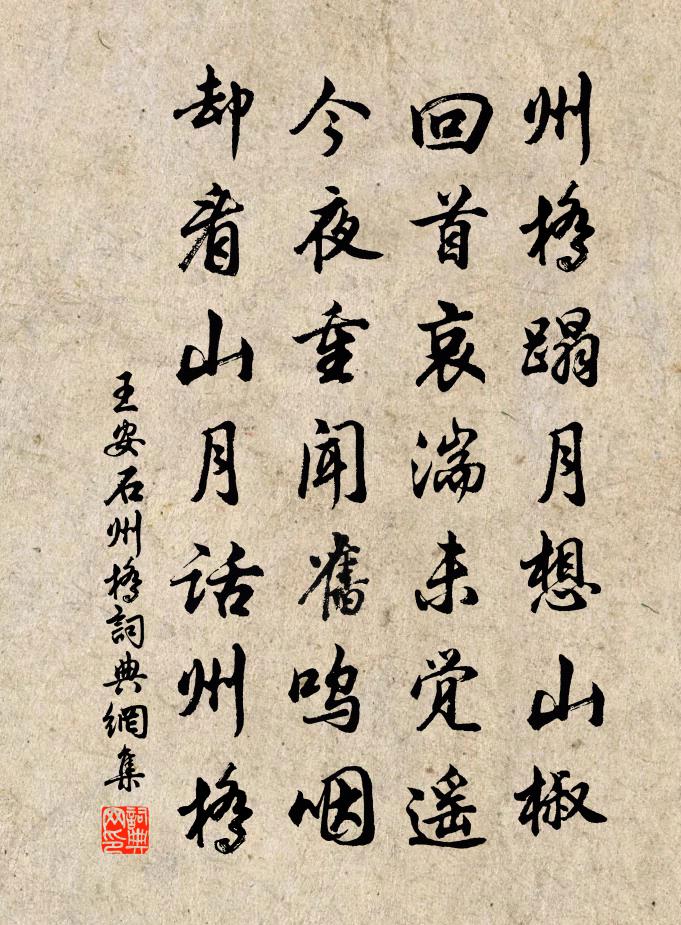 州橋蹋月想山椒
回首哀湍未觉遥
今夜重闻舊呜咽
却看山月话州橋
王安石州橋詞典網集
詞典网印